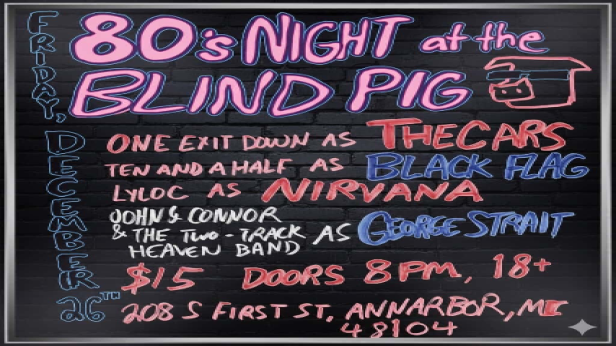 FRIDAY,
DECEMBER
26TH
80's NIGHT at the
BLIND PIG
ONE EXIT DOWN AS THE CARS
TEN AND A HALF AS BLACK FLAG
LYLOC AS NIRVANA
JOHN & CONNOR
& THE TWO-TRACK AS GEORGE STRAIT
HEAVEN BAND
$15 DOORS 8PM, 18+
208 S FIRST ST, ANNARBOR, MI
48104